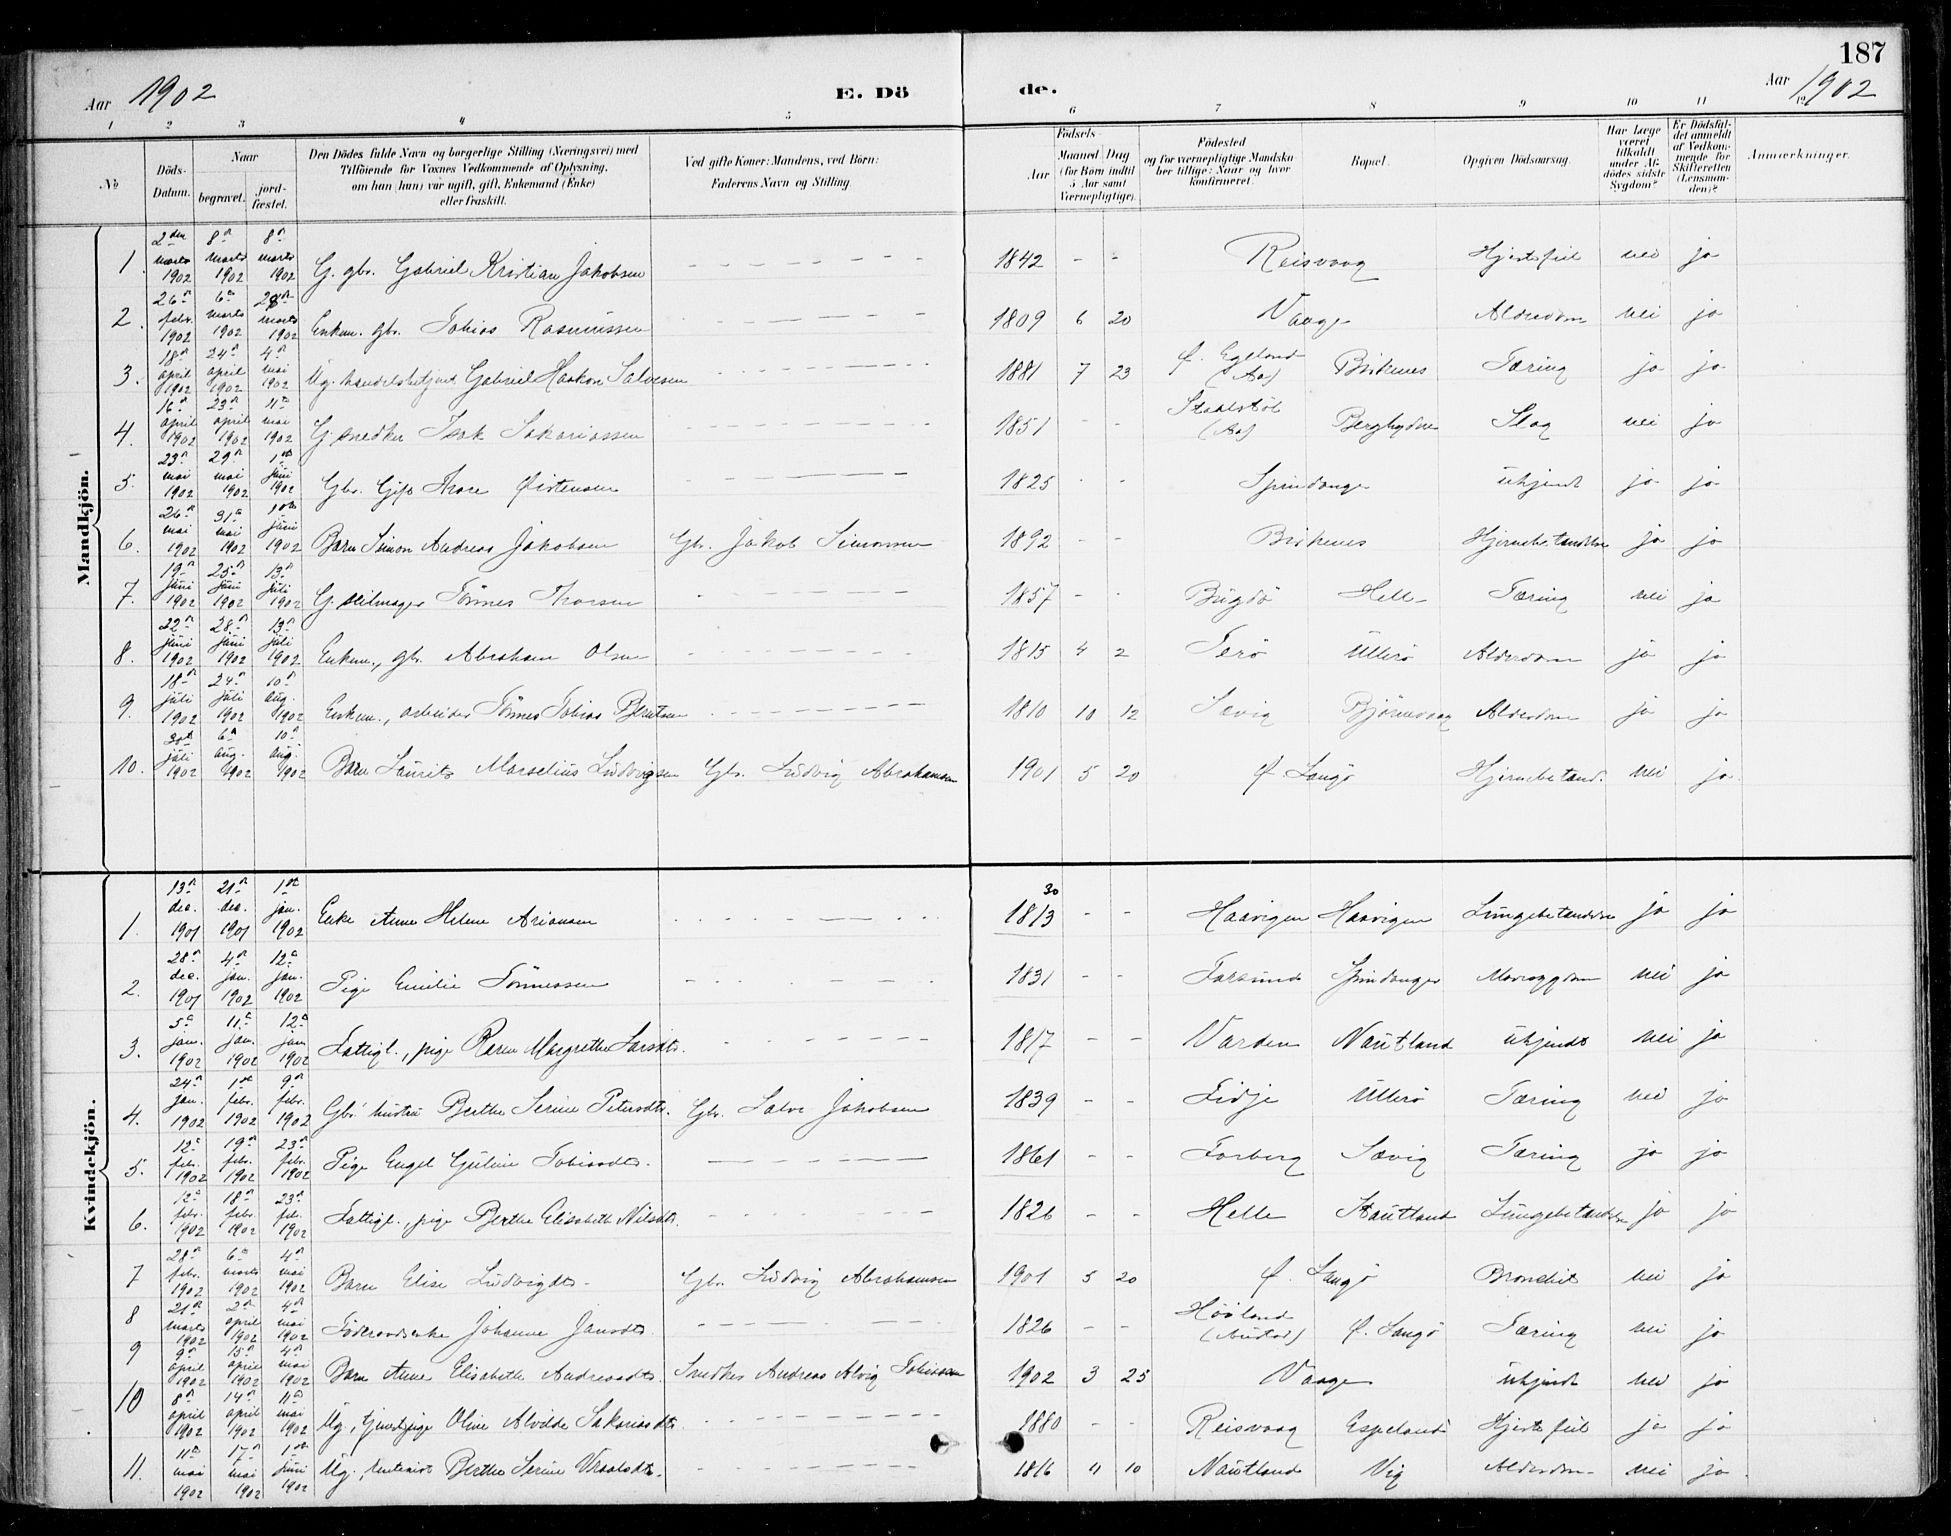 187
Aar 1902 E. Dö de. Aar 1902
1 2 3 4 5 6 7 8 9 10 11 12
№
Döds-Datum.
Naar
begravet.
jordfæstet.
Den Dödes fulde Navn og borgerlige Stilling (Næringsvei) med
Tilföiende for Voxnes Vedkommende af Oplysning,
om han (hun) var ugift, gift, Enkemand (Enke)
eller fraskilt.
Ved gifte Koner: Mandens, ved Börn:
Faderens Navn og Stilling.
Födsels-
Aar
Maaned Dag
(for Börn indtil
5 Aar samt
Værnepligtige).
Födested
og for værnepligtige Mandskaber tillige: Naar og hvor
konfirmeret.
Bopæl.
Opgiven Dödsaarsag.
Har Læge
været
tilkaldt
under Afdödes sidste
Sygdom?
Er Dödsfaldet anmeldt
af Vedkommende for
Skifteretten
(Lensmanden)?
Anmærkninger.
Mandkjön.
1. 2den marts 1902 8de marts 1902 8de marts 1902 G. gbr. Gabriel Kristian Jakobsen 1842 - - Reisvaag Hjertefeil nei jo
2. 26de febr. 1902 6te marts 1902 marts 1902 Enkem. gbr. Tobias Rasmussen 1809 6 20 Vaage Alderdom nei jo
3. 18de april 1902 24de april 1902 4de mai 1902 Ug. handelsbetjent Gabriel Haakon Salvesen 1881 7 23 Ø. Egeland (Aa) Birkenes Tæring jo jo
4. 16de april 1902 23de april 1902 11te mai 1902 G. snedker Isak Sakariassen 1851 - - (Aa) Slag nei jo
5. 23de mai 1902 29de mai 1902 1ste juni 1902 Gbr. Gift Thore Øistensen 1825 - - Spindanger ukjendt jo jo
6. 26de mai 1902 31te mai 1902 1ste juni 1902 Barn Simon Andreas Jakobsen Gbr. Jakob Simonsen 1892 - - Birkenes Hjernebetændelse jo jo
7. 19de juni 1902 25de juni 1902 13de juli 1902 G. seilmager Tönnes Thorsen 1857 - - Bugdö Helle Tæring nei jo
8. 22de juni 1902 28de juni 1902 13de juli 1902 Enkem., gbr. Abraham Olsen 1815 4 2 Terö Ullerö Alderdom jo jo
9. 18de juli 1902 24de juli 1902 10de aug. 1902 Enkem., arbeider Tönnes Tobias Berntsen 1810 10 12 Sævig Björnevaag Alderdom jo jo
10. juli 1902 6te aug. 1902 10de aug. 1902 Barn Laurits Marselius Ludvigsen Gbr. Ludvig Abrahamsen 1901 5 20 Ø. Langö Hjernebetænd. nei jo
Kvindekjön.
1. 13de dec. 1901 21de dec. 1901 1ste jan. 1902 Enke Anne Helene Ariansen 1813 30 - - Haavigen Haavigen Lungebetændelse jo jo
2. 28de dec. 1901 4de jan. 1902 12te jan. 1902 Pige Emilie Tönnessen 1831 - - Farsund Spindanger nei jo
3. 5te jan. 1902 11te jan. 1902 12te jan. 1902 Fattigl., pige Karen Margrethe Larsdtr. 1817 - - Varden Nautland ukjendt nei jo
4. 24de jan. 1902 1ste febr. 1902 9de febr. 1902 Gbr. hustru Berthe Serine Petersdtr. Gbr. Salve Jakobsen 1839 - - Lidje Ullerö Tæring nei jo
5. 12te febr. 1902 19de febr. 1902 23de febr. 1902 Pige Engel Guline Tobiasdtr. 1861 - - Forberg Sævig Tæring jo jo
6. 12te febr. 1902 18de febr. 1902 23de feb. 1902 Fattigl., pige Berthe Elisabeth Nilsdtr. 1826 - - Helle Nautland Lungebetændelse jo jo
7 28de febr. 1902 6te marts 1902 4de mai 1902 Barn Elise Ludvigdtr. Gbr. Ludvig Abrahamsen 1901 5 20 Ø. Langö Bronchit nei jo
8 21de marts 1902 2den april 1902 4de mai 1902 Föderaadsenke Johanne Jansdtr. 1826 - - Höiland (Austad) Ø. Langö Tæring nei jo
9 9de april 1902 15de april 1902 4de mai 1902 Barn Anne Elisabeth Andreasdtr. Snedker Andreas Alvig Tobiassen 1902 3 25 Vaage ukjendt nei jo
10 8de april 1902 14de april 1902 11te mai 1902 Ug., tjenestpige Oline Alvilde Sakariasdtr. 1880 - - Reisvaag Espeland Hjertefeil jo jo
11. 11te mai 1902 17de mai 1902 1ste juni 1902 Ug. Berthe Serine 1816 4 10 Nautland Vig Alderdom nei jo